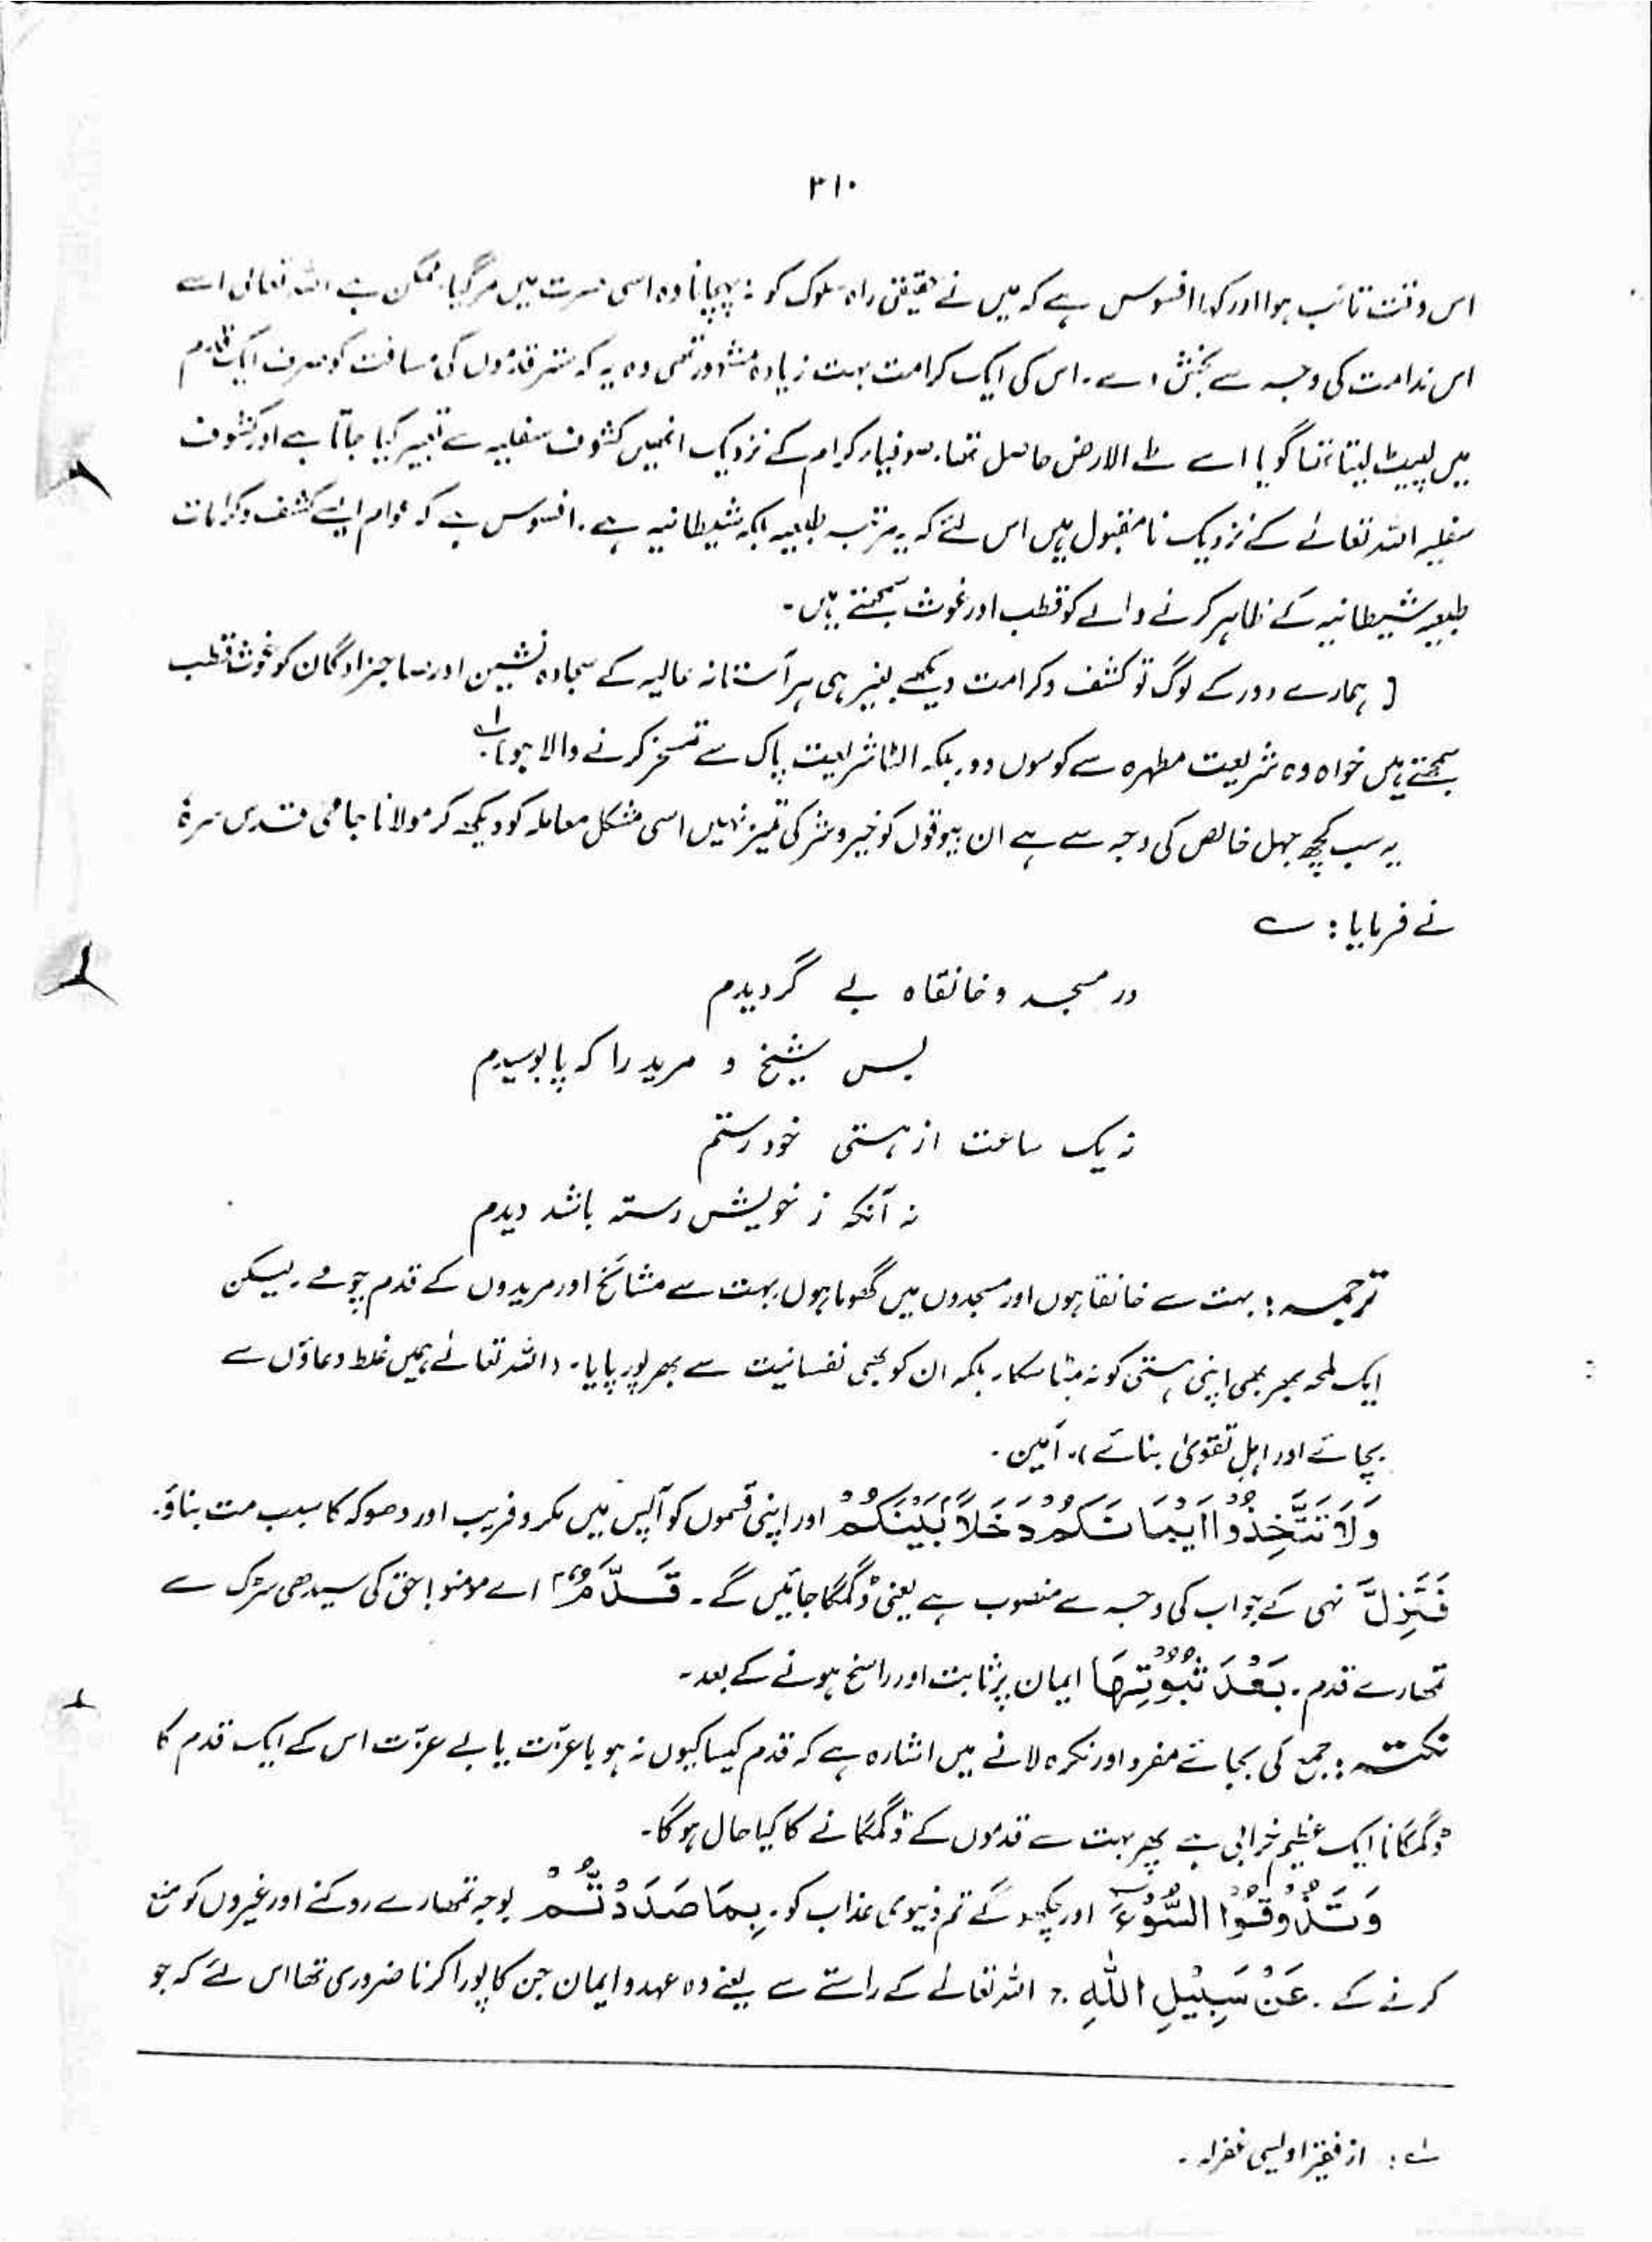 ۳۱۰
اس وقت تائب ہوا اور کہا افسوس ہے کہ میں نے حقیقی راہ سلوک کو نہ پہچانا وہ اسی حسرت میں مر گیا۔ ممکن ہے اللہ تعالیٰ اسے
اس ندامت کی وجہ سے بخش دے۔ اس کی ایک کرامت بہت زیادہ مشہور تھی وہ یہ کہ ستر قدموں کی مسافت کو صرف ایک قدم
میں لپیٹ لیتا تھا گویا اسے طے الارض حاصل تھا۔ صوفیاء کرام کے نزدیک انہیں کشوف سفلیہ سے تعبیر کیا جاتا ہے اور کشوف
سفلیہ اللہ تعالےٰ کے نزدیک نامقبول ہیں اس لئے کہ یہ مرتبہ طبعیہ بلکہ شیطانیہ ہے۔ افسوس ہے کہ عوام ایسے کشف و کرامات
طبعیہ شیطانیہ کے ظاہر کرنے والے کو قطب اور غوث سمجھتے ہیں۔
[ ہمارے دور کے لوگ تو کشف و کرامت دیکھے بغیر ہی ہر آستانہ عالیہ کے سجادہ نشین اور صاحبزادگان کو غوث قطب
سمجھتے ہیں خواہ وہ شریعت مطہرہ سے کوسوں دور بلکہ الٹا شریعت پاک سے تمسخر کرنے والا ہو] لے
یہ سب کچھ جہل خالص کی وجہ سے ہے ان بیوقوں کو خیر و شر کی تمیز نہیں اسی مشکل معاملہ کو دیکھ کر مولانا جامی قدس سرہٗ
نے فرمایا : ے
در مسجد و خانقاہ بے گردیدم
بس شیخ و مرید را کہ پا بوسیدم
نہ یک ساعت از ہستی خود رستم
نہ آنکہ ز خویش رستہ باشد دیدم
ترجمہ : بہت سے خانقاہوں اور مسجدوں میں گھوما ہوں بہت سے مشائخ اور مریدوں کے قدم چومے۔ لیکن
ایک لمحہ بھر بھی اپنی ہستی کو نہ مٹا سکا۔ بلکہ ان کو بھی نفسانیت سے بھر پور پایا۔ (اللہ تعالےٰ ہمیں غلط دعاؤں سے
بچائے اور اہل تقویٰ بنائے)۔ آمین۔
وَلَا تَتَّخِذُوْا اَیْمَانَكُمْ دَخَلًا بَیْنَكُمْ اور اپنی قسموں کو آپس میں مکر و فریب اور دھوکہ کا سبب مت بناؤ۔
فَتَزِلَّ نہی کے جواب کی وجہ سے منصوب ہے یعنی ڈگمگا جائیں گے۔ قَدَمٌ اے مومنو! حق کی سیدھی سڑک سے
تمھارے قدم۔ بَعْدَ ثُبُوْتِهَا ایمان پر ثابت اور راسخ ہونے کے بعد۔
نکتہ : جمع کی بجائے مفرد اور نکرہ لانے میں اشارہ ہے کہ قدم کیسا کیوں نہ ہو باعزّت یا بے عزّت اس کے ایک قدم کا
ڈگمگانا ایک عظیم خرابی ہے پھر بہت سے قدموں کے ڈگمگانے کا کیا حال ہوگا۔
وَتَذُوْقُوا السُّوْٓءَ اور چکھو گے تم دنیوی عذاب کو۔ بِمَا صَدَدْتُّمْ بوجہ تمھارے روکنے اور غیروں کو منع
کرنے کے۔ عَنْ سَبِیْلِ اللّٰهِ ج اللہ تعالےٰ کے راستے سے یعنے وہ عہد و ایمان جن کا پورا کرنا ضروری تھا اس لئے کہ جو
لے : از فقیر اولیسی غفرلہ۔